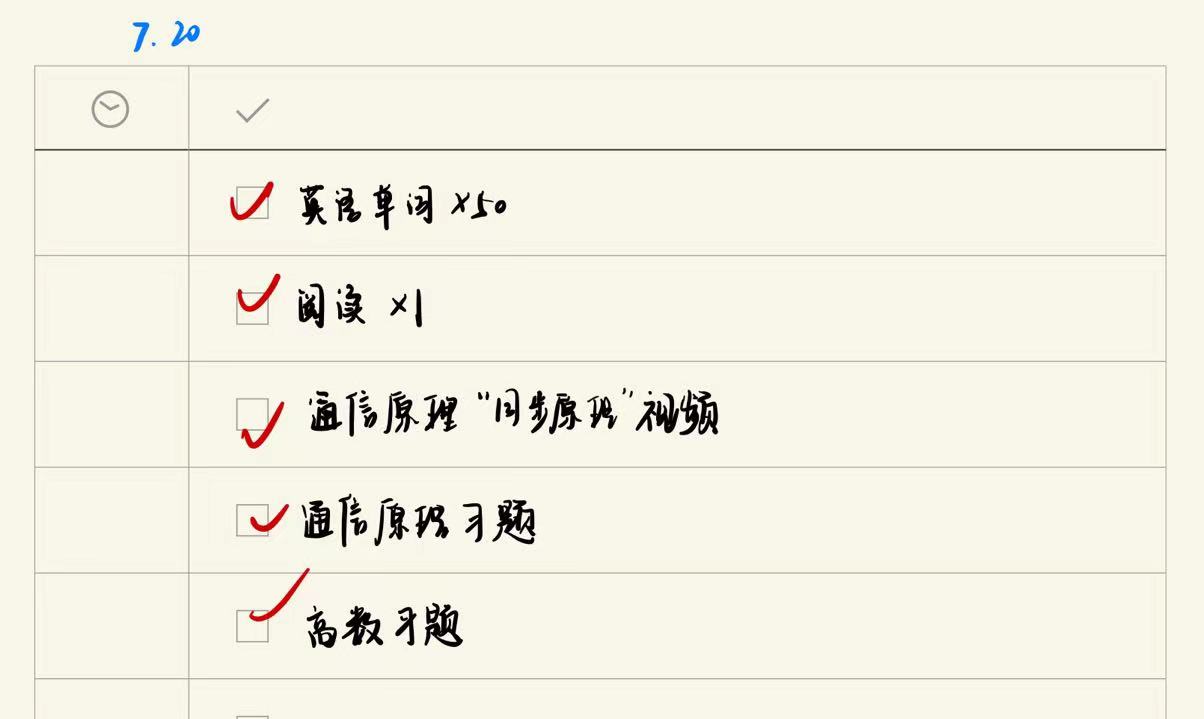 7.20
英语单词 ×50
阅读 ×1
通信原理“同步原理”视频
通信原理习题
高数习题